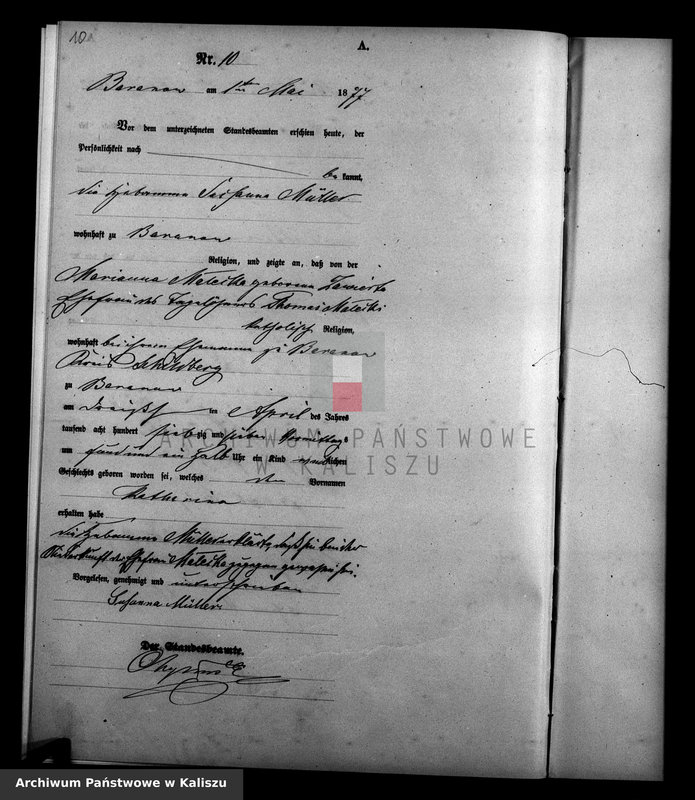 10
A.
Nr. 10
Baranow am 1ten Mai 1877
Vor dem unterzeichneten Standesbeamten erschien heute, der
Persönlichkeit nach
be kannt,
die Hebamme Susanna Müller
wohnhaft zu Baranow
Religion, und zeigte an, daß von der
Marianna Malecka geborenen
Ehefrau des Tagelöhners Thomas Malecki
katholisch Religion,
wohnhaft bei ihrem Ehemanne zu Baranow
Kreis Schildberg
zu Baranow
am dreißigst im April des Jahres
tausend acht hundert siebzig und sieben Vormittags
um ein halb Uhr ein Kind weiblichen
Geschlechts geboren worden sei, welches den Vornamen
Katharina
erhalten habe
die Hebamme Müller erklärte, daß sie bei der
Niederkunft der Ehefrau Malecka zugegen gewesen sei.
Vorgelesen, genehmigt und unterschrieben
Susanna Müller
Der Standesbeamte.
ARCHIWUM PAŃSTWOWE
W KALISZU
Archiwum Państwowe w Kaliszu